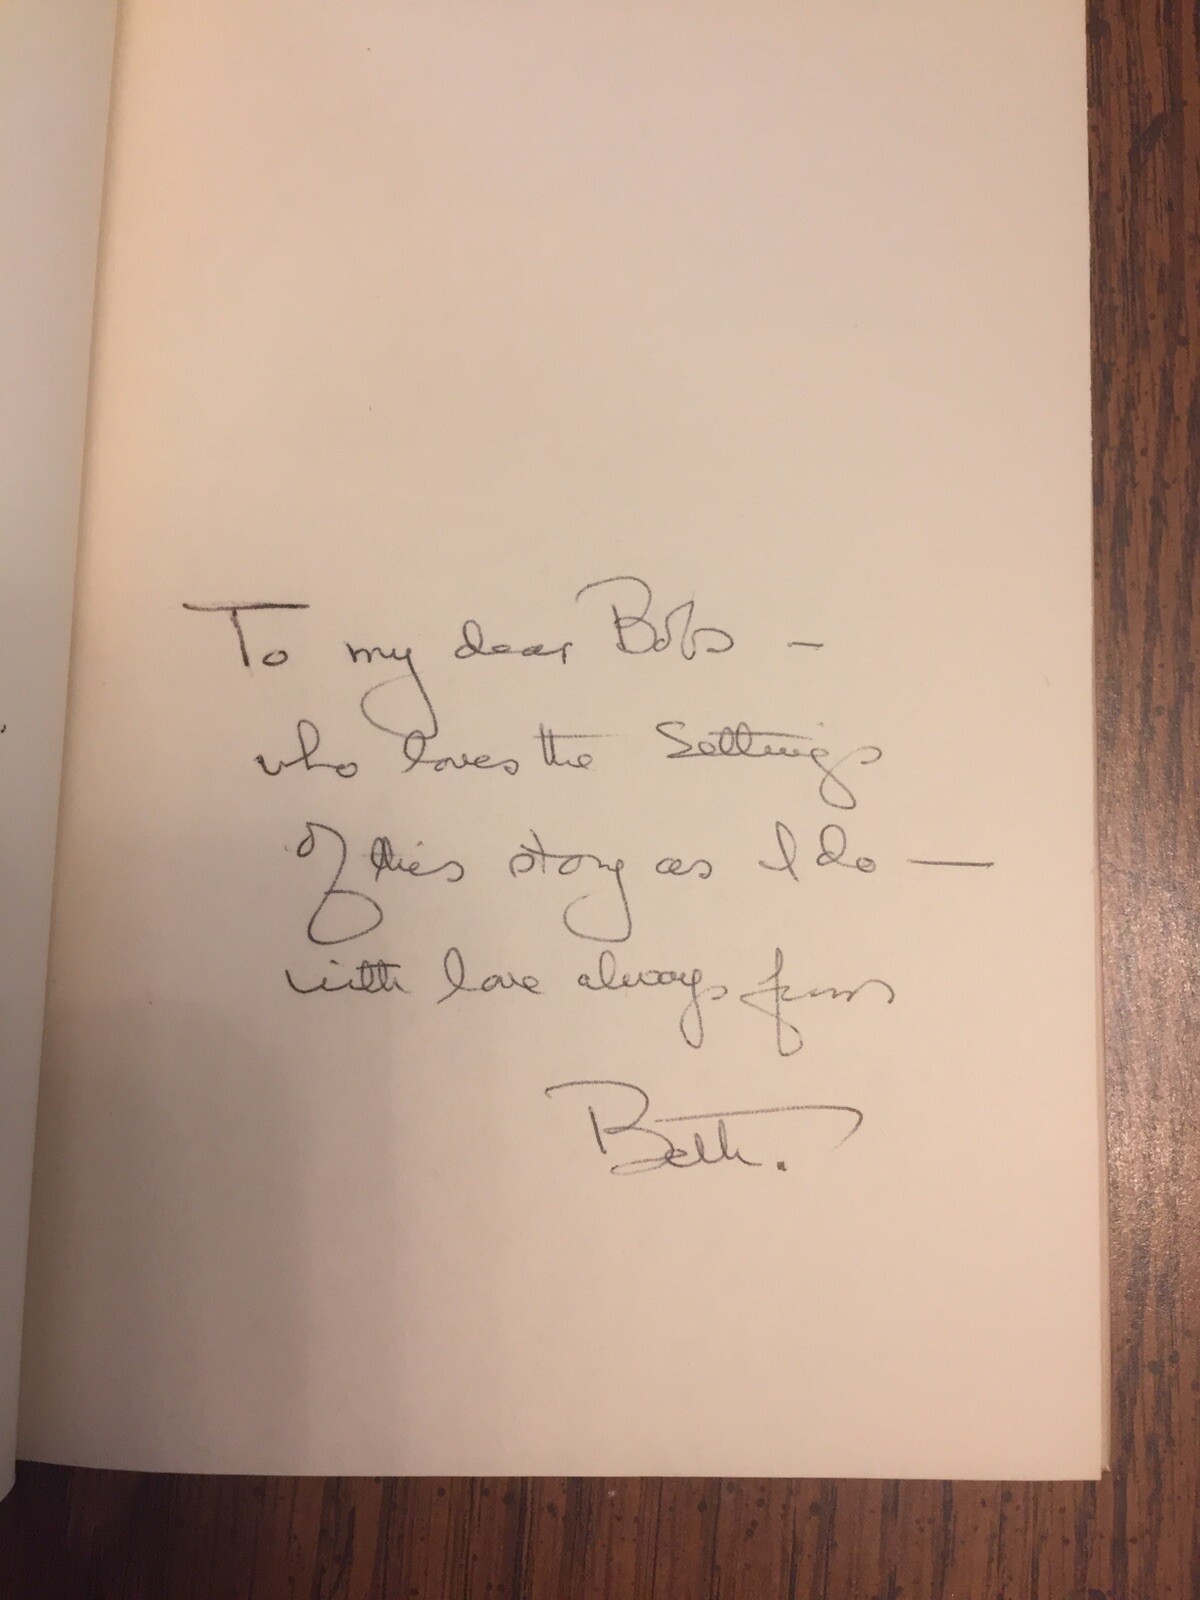 To my dear Bobs –
who loves the Settings
of this story as I do —
with love always from
Beth.